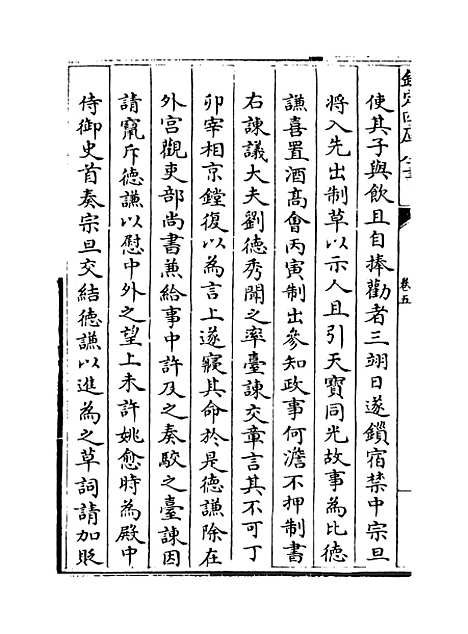 欽定四庫全書
卷五
使其子與飲且自捧勸者三翊日遂鎖宿禁中宗旦
將入先出制草以示人且引天寶同光故事為比德
謙喜置酒高會丙寅制出參知政事何澹不押制書
右諫議大夫劉德秀聞之率臺諫交章言其不可丁
卯宰相京鏜復以為言上遂寢其命於是德謙除在
外宮觀吏部尚書兼給事中許及之奏駮之臺諫因
請竄斥德謙以慰中外之望上未許姚愈時為殿中
侍御史首奏宗旦交結德謙以進為之草詞請加貶